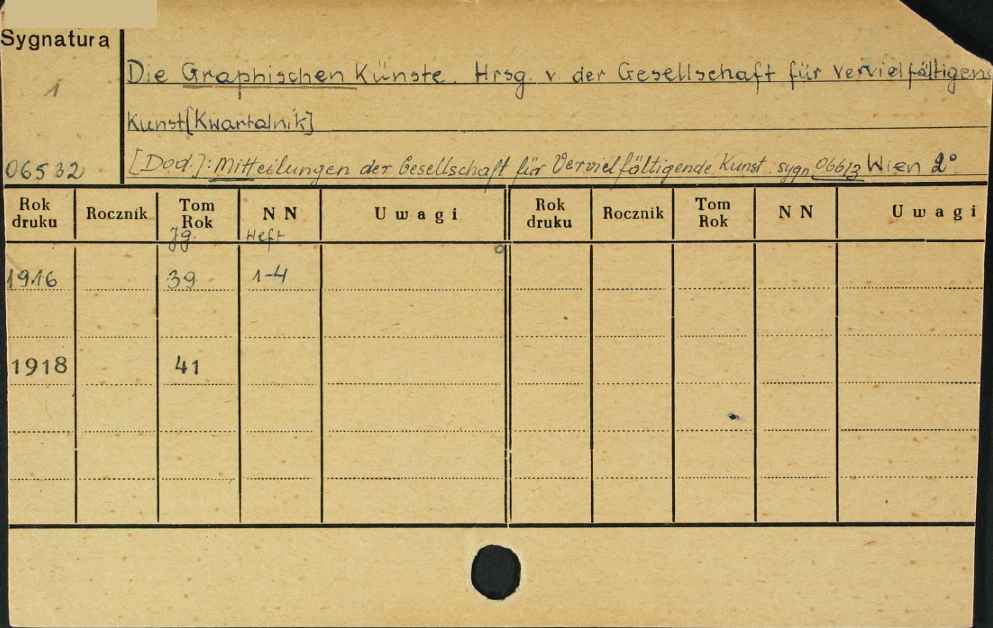 Sygnatura
1
Die Graphischen Künste. Hrsg. v der Gesellschaft für vervielfältigen
Kunst [Kwartalnik]
06532
[Dod.]: Mitteilungen der Gesellschaft für Vervielfältigende Kunst. sygn. 06613 Wien 2°
Rok druku Rocznik Tom Rok NN Uwagi Rok druku Rocznik Tom Rok NN Uwagi
Jg. Heft
1916 39 1-4
1918 41